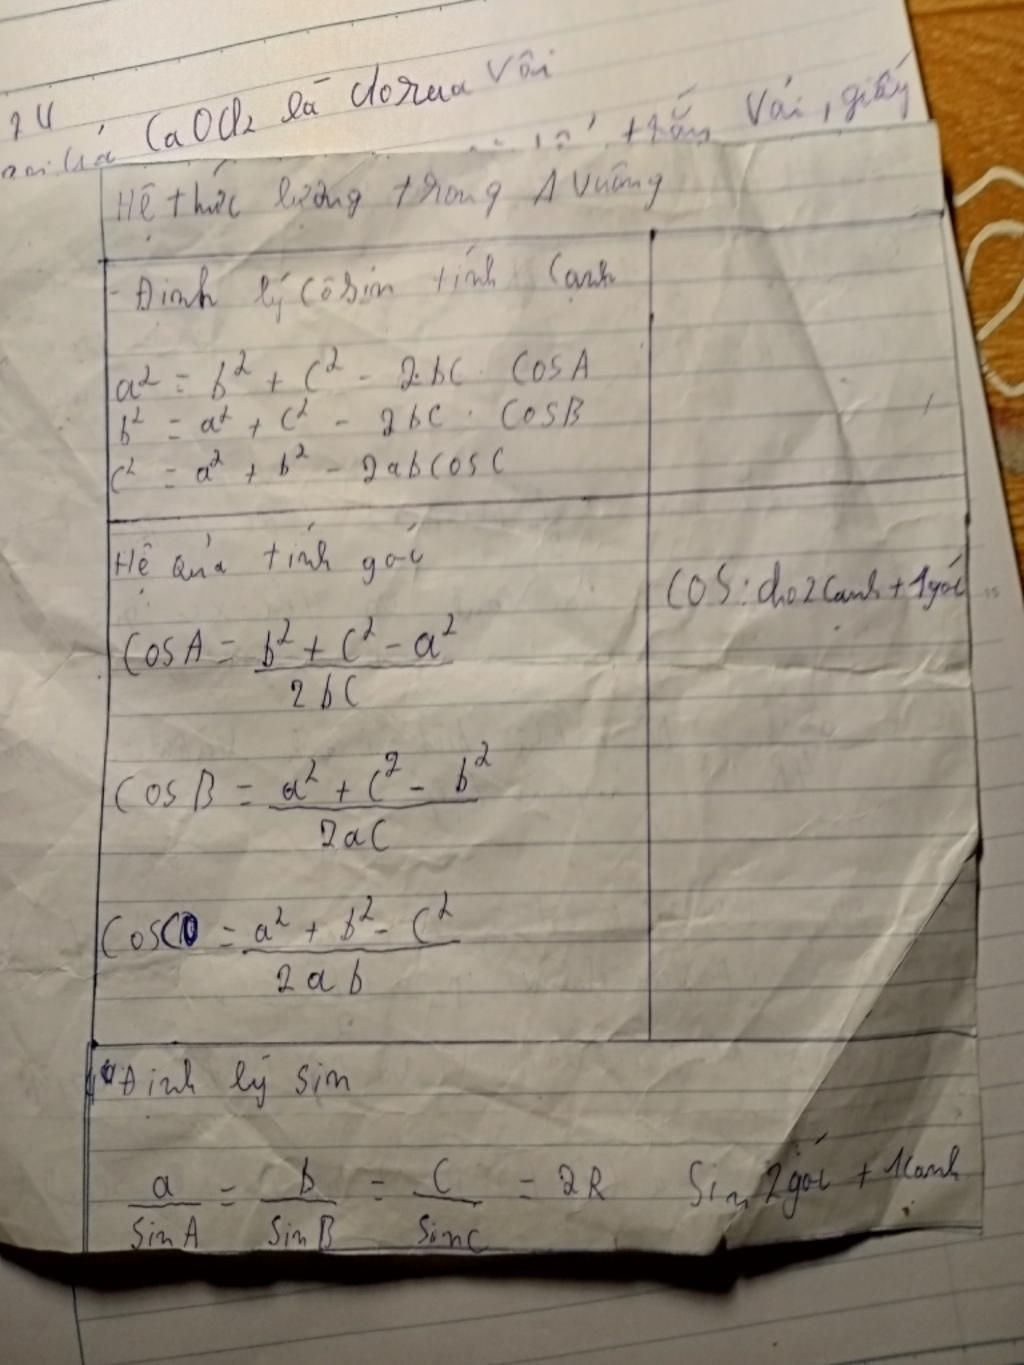 CaOCl₂ là clorua vôi
trắng vải, giấy
Hệ thức lượng trong Δ vuông
- Định lý côsin tính cạnh
a² = b² + c² - 2.bc . cosA
b² = a² + c² - 2bc . cosB
c² = a² + b² - 2abcosC
Hệ quả tính góc
cos: cho 2 cạnh + 1 góc
CosA = b² + c² - a² / 2bc
CosB = a² + c² - b² / 2ac
CosC = a² + b² - c² / 2ab
Định lý sin
a / sinA = b / sinB = c / sinC = 2R Sin 2 góc + 1 cạnh